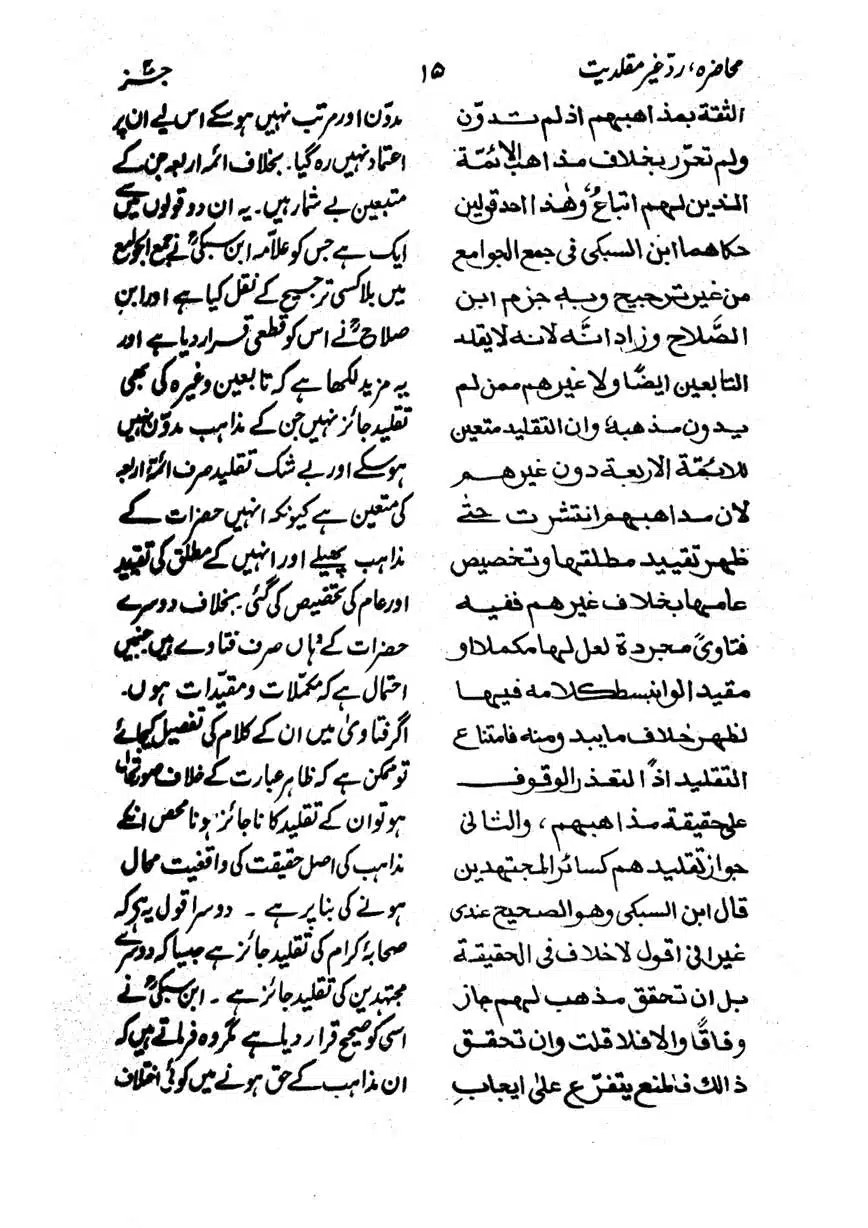 محاضرہ، ردّ غیر مقلدیت
۱۵
جز ۲
الثقة بمذاهبهم اذ لم تدوّن
ولم تحرّر بخلاف مذاهب الائمّة
الذين لهم اتباعٌ وهٰذا احد قولين
حكاهما ابن السبكى فى جمع الجوامع
من غير ترجيح وبه جزم ابن
الصَّلاح وزاد انَّه لانه لا يقلد
التابعين ايضًا ولا غيرهم ممن لم
يدون مذهبهٗ وان التقليد متعين
للائمّة الاربعة دون غيرهم
لان مذاهبهم انتشرت حتٰى
ظهر تقييد مطلقها وتخصيص
عامها بخلاف غيرهم ففيه
فتاوىً مجردة لعل لها مكملا او
مقيد الوانبسط كلامه فيها
لظهر خلاف مايبدومنه فامتناع
التقليد اذًا التعذر الوقوف
على حقيقة مذاهبهم، والثانى
جواز تقليدهم كسائر المجتهدين
قال ابن السبكى وهو الصحيح عندى
غير انى اقول لاخلاف فى الحقيقة
بل ان تحقق مذهب لهم جاز
وفاقًا والا فلا قلت وان تحقق
ذالك فالمنع يتفرّع علىٰ ايجابِ
مدوّن اور مرتب نہیں ہو سکے اس لیے ان پر
اعتماد نہیں رہ گیا۔ بخلاف ائمہ اربعہ جن کے
متبعین بے شمار ہیں۔ یہ ان دو قولوں میں سے
ایک ہے جس کو علامہ ابن سبکیؒ نے جمع الجوامع
میں بلا کسی ترجیح کے نقل کیا ہے اور ابن
صلاحؒ نے اس کو قطعی قرار دیا ہے اور
یہ مزید لکھا ہے کہ تابعین وغیرہ کی بھی
تقلید جائز نہیں جن کے مذاہب مدوّن نہیں
ہو سکے اور بے شک تقلید صرف ائمۂ اربعہ
کی متعین ہے کیونکہ انہیں حضرات کے
مذاہب پھیلے اور انہیں کے مطلق کی تقیید
اور عام کی تخصیص کی گئی۔ بخلاف دوسرے
حضرات کے وہاں صرف فتاوے ہیں جنہیں
احتمال ہے کہ مکمّلات و مقیّدات ہوں۔
اگر فتاویٰ میں ان کے کلام کی تفصیل کیجائے
تو ممکن ہے کہ ظاہر عبارت کے خلاف
ہو تو ان کے تقلید کا ناجائز ہونا محض انکے
مذاہب کی اصل حقیقت کی واقفیت محال
ہونے کی بنا پر ہے ۔ دوسرا قول یہ ہے کہ
صحابۂ کرام کی تقلید جائز ہے جیسا کہ دوسرے
مجتہدین کی تقلید جائز ہے ۔ ابن سبکیؒ نے
اسی کو صحیح قرار دیا ہے مگر وہ فرماتے ہیں کہ
ان مذاہب کے حق ہونے میں کوئی اختلاف